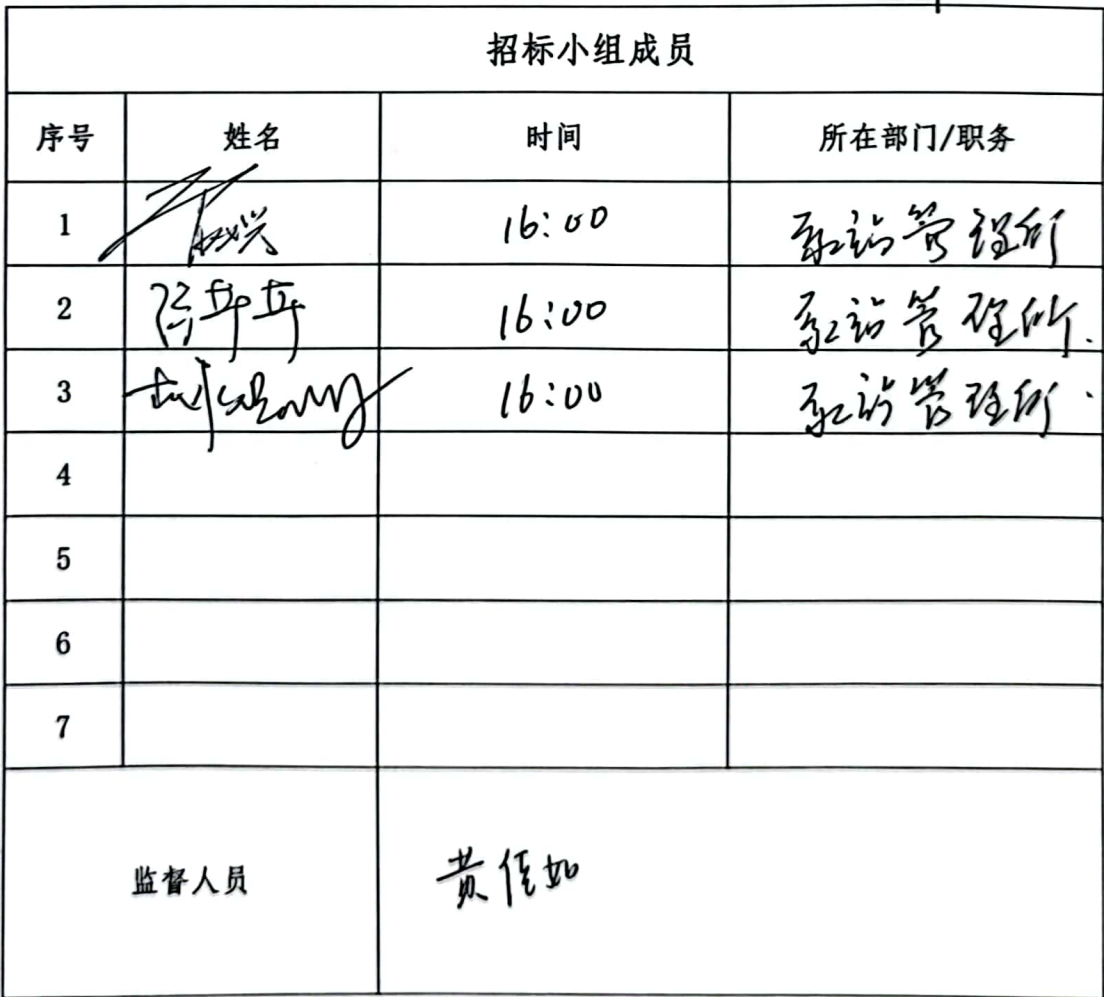 招标小组成员
序号 姓名 时间 所在部门/职务
1 16:00 泵站管理所
2 16:00 泵站管理所.
3 16:00 泵站管理所.
4
5
6
7
监督人员 黄佳如